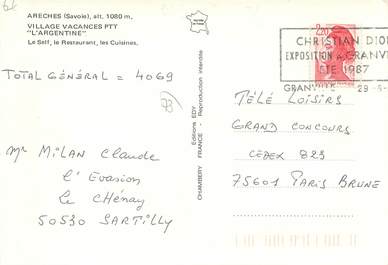 ARECHES (Savoie), alt. 1080 m.
VILLAGE VACANCES PTT
"L'ARGENTINE"
Le Self, le Restaurant, les Cuisines.
TOTAL GÉNÉRAL = 4069
73
Mr MILAN Claude
l'Evasion
le CHÉNAY
50530 SARTILLY
Editions EDY
CHAMBERY FRANCE - Reproduction interdite
2,20
CHRISTIAN DIO
EXPOSITION à GRANV
ÉTÉ 1987
GRANVILLE 29-6-
TÉLÉ LOISIRS
GRAND CONCOURS
CEDEX 823
75601 PARIS BRUNE